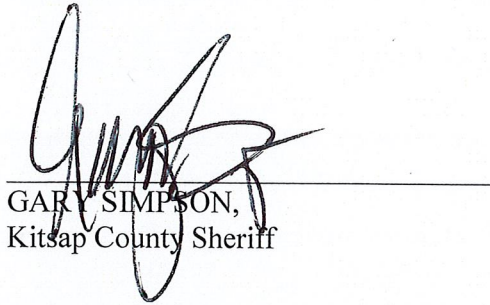 GARY SIMPSON,
Kitsap County Sheriff